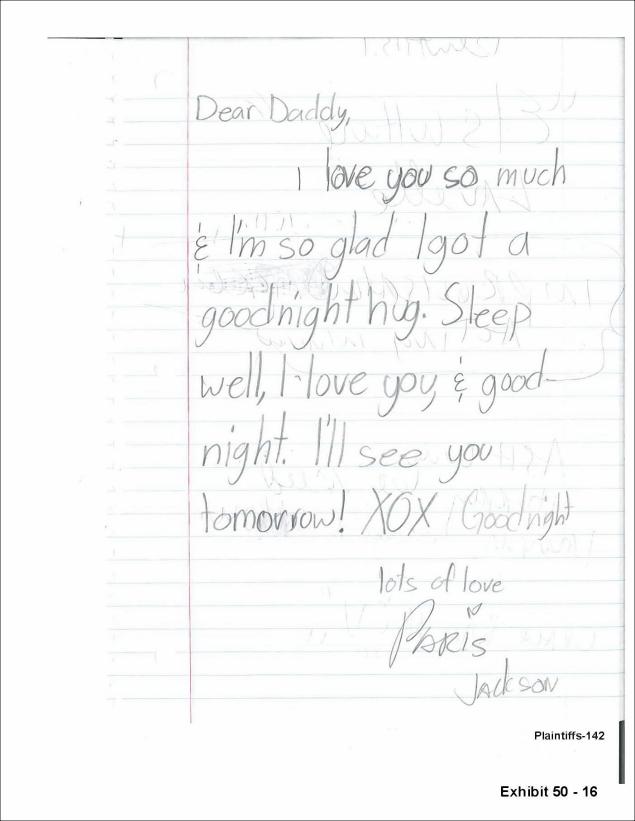 Dear Daddy,
I love you so much
& I'm so glad I got a
goodnight hug. Sleep
well, I love you, & good-
night. I'll see you
tomorrow! XOX Goodnight
lots of love
PARiS
JACKSON
Plaintiffs-142
Exhibit 50 - 16